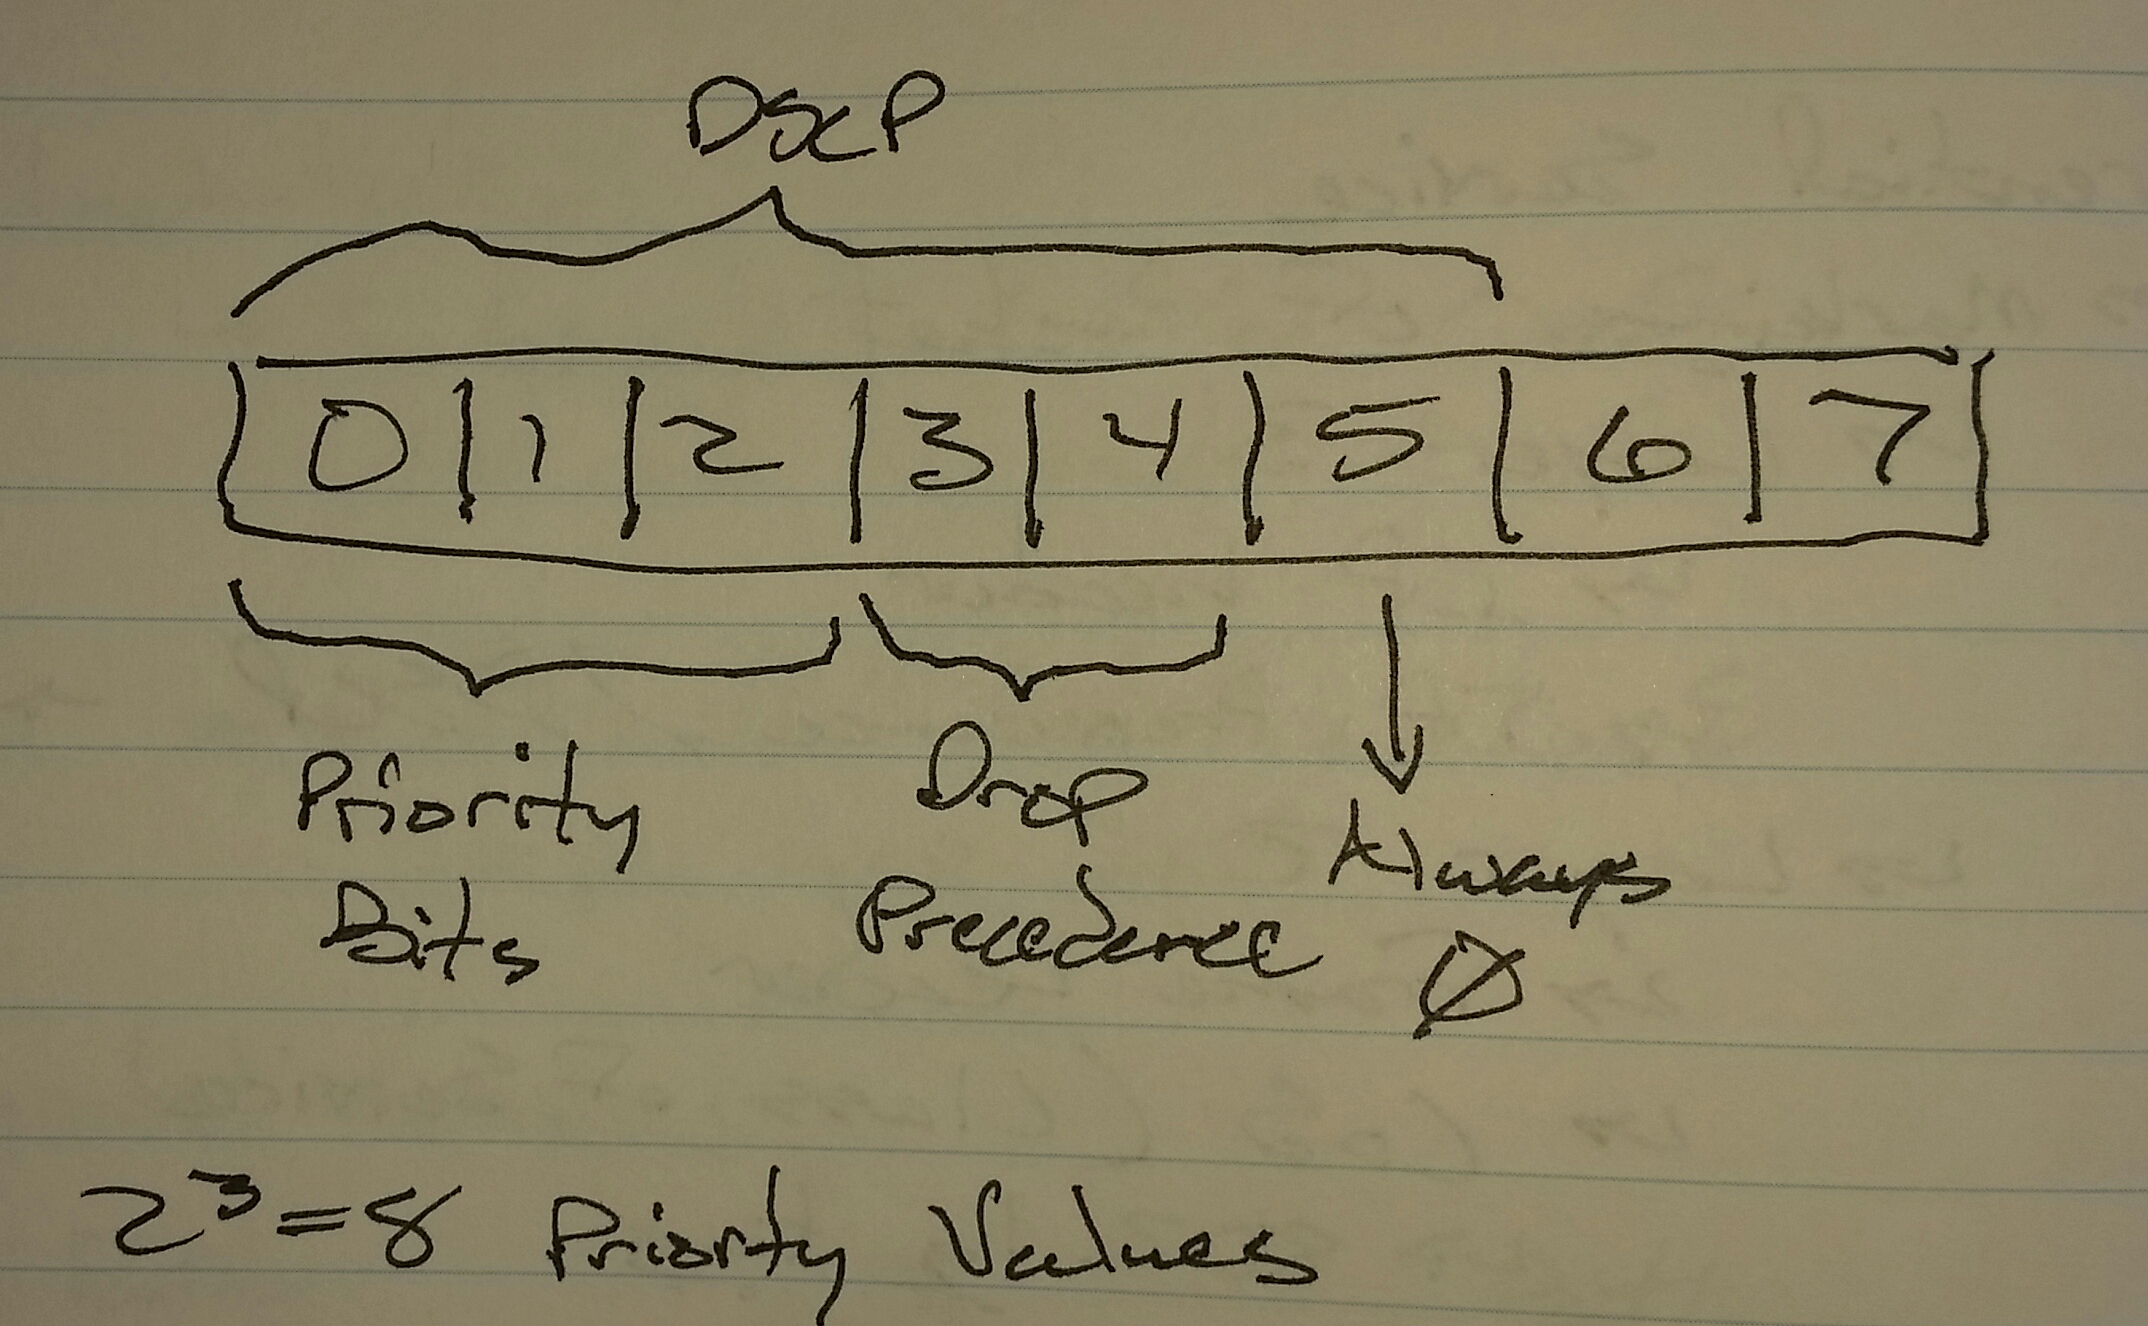 DSCP
0 1 2 3 4 5 6 7
Priority
Bits
Drop
Precedence
Always
Ø
2³=8 Priority Values